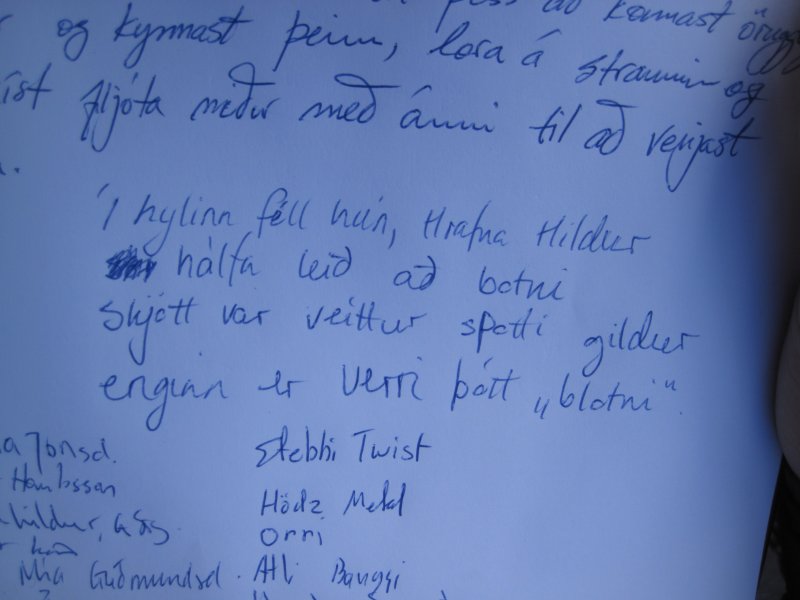 þess að komast
og kynnast þeim, lora á straumin og
fljóta niður með ánni til að venjast
Í hylinn féll hún, Hrafna Hildur
hálfa leið að botni
Skjótt var veittur spotti gildur
enginn er verri þótt „blotni“.
Jónsd. Stebbi Twist
Hödz Metal
Orri
Guðmundsd. Atli Banggsi